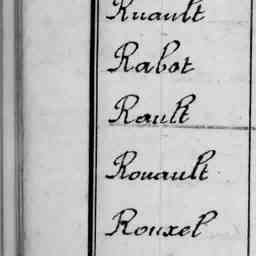 Ruault
Rabot
Rault
Rouault
Rouxel